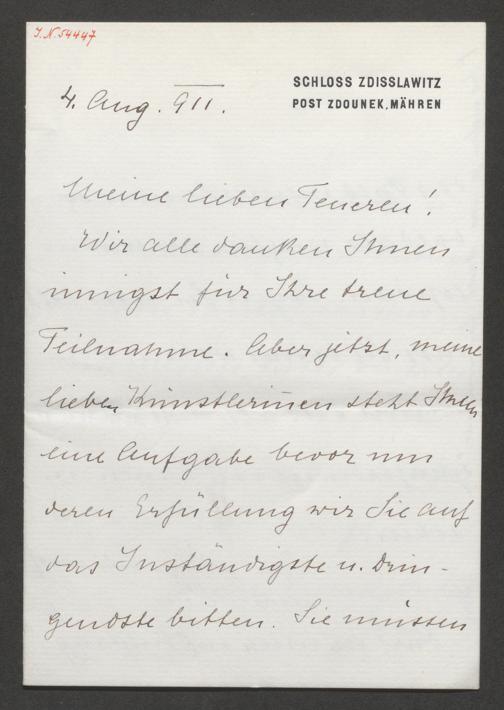 J.N. 54447
SCHLOSS ZDISSLAWITZ
POST ZDOUNEK, MÄHREN
4. Aug. 911.
Meine lieben Teueren!
Wir alle danken Ihnen
innigst für Ihre treue
Teilnahme. Aber jetzt, meine
lieben Künstlerinen steht Ihnen
eine Aufgabe bevor um
deren Erfüllung wir Sie auf
das Inständigste u. Drin-
gendste bitten. Sie müssen